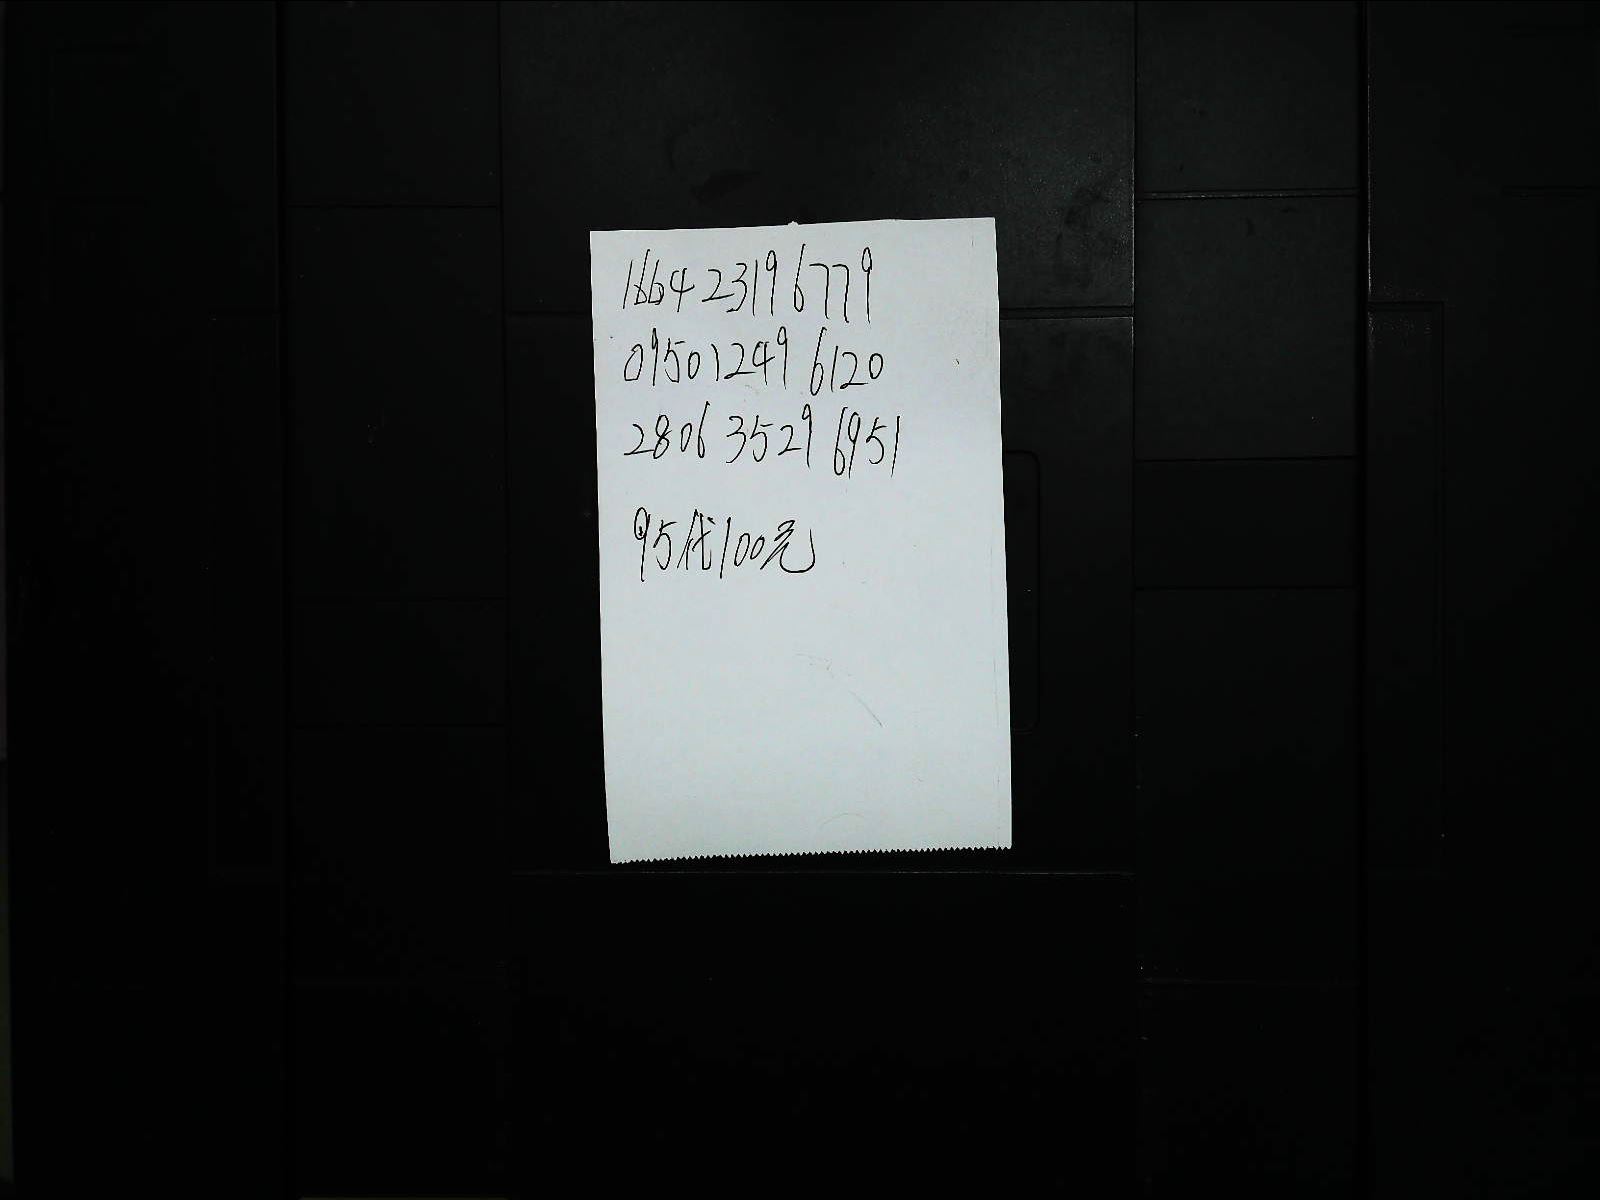 1664 2319 6779
0950 1249 6120
2806 3529 6951
95代100元